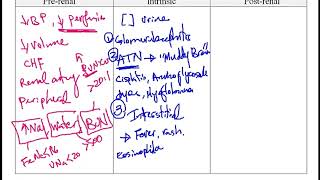 Pre-renal
Intrinsic
Post-renal
↓BP, ↓ Perfusion
↓ Volume
CHF
Renal artery
Peripheral
↑Na, Water, BUN
BUN/Cr
>20:1
UNa<20
[ ] Urine
① Glomerulonephritis
② ATN → "Muddy Brown
Cisplatin, Aminoglycoside
dyes, Myoglobinuria
③ Interstitial
→ Fever, rash,
Eosinophilia